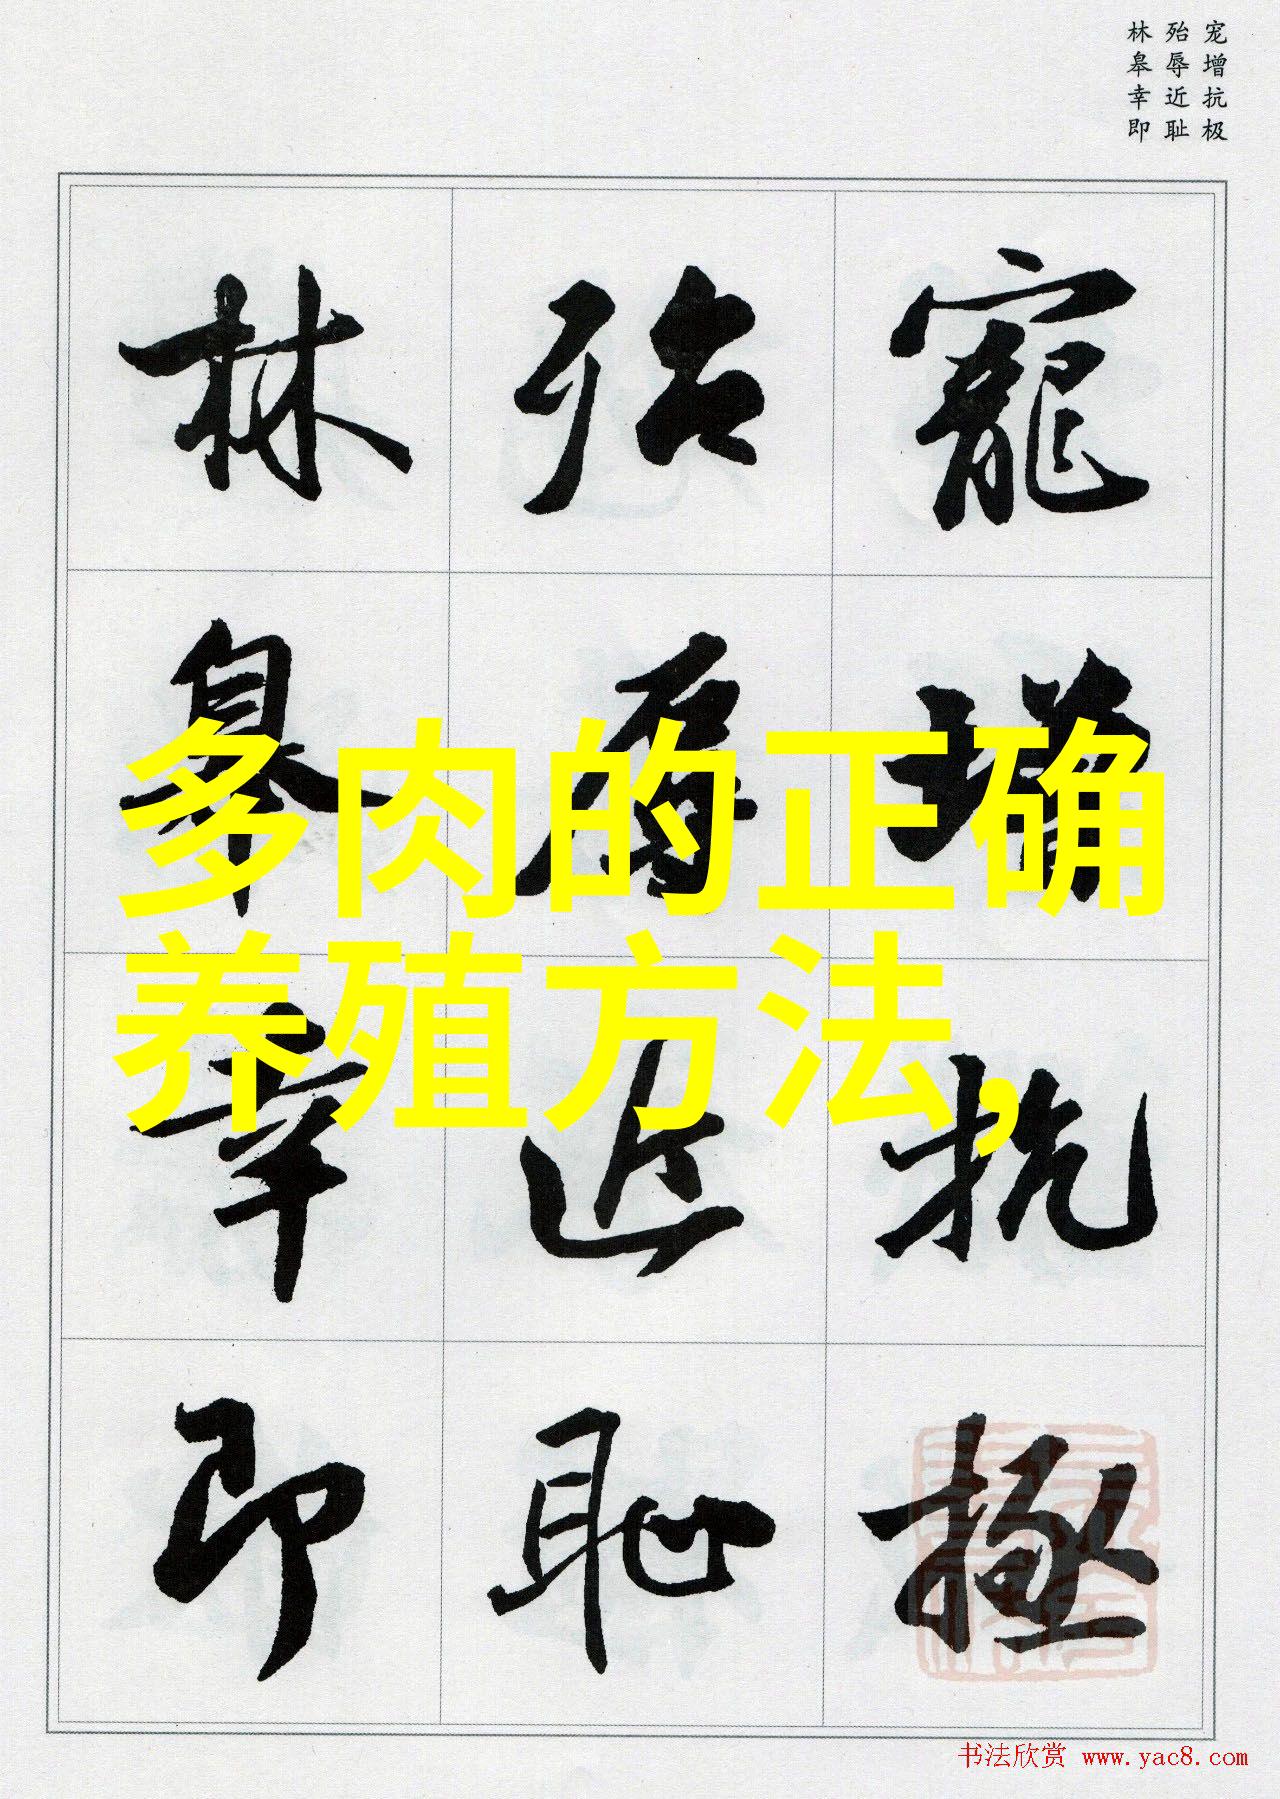 宠增抗极
殆辱近耻
林皋幸即
寵增抗極
殆辱近恥
林皋幸即
多肉的正确
养殖方法,
书法欣赏 www.yac8.com